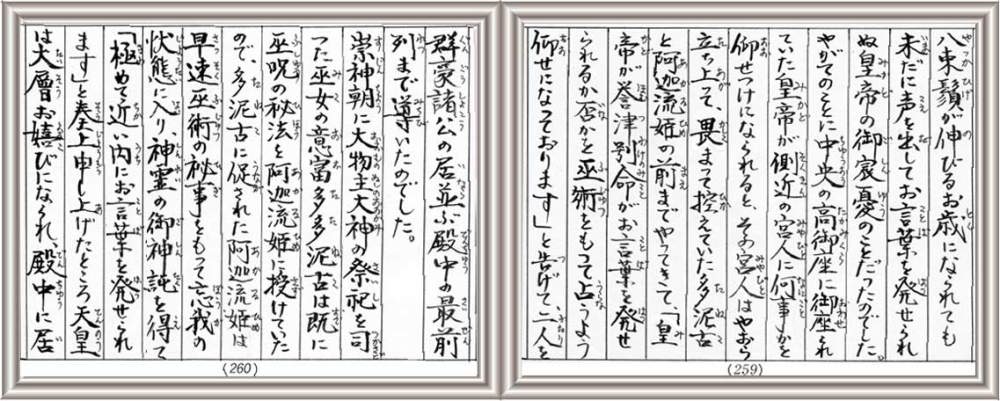 八束鬚が伸びるお歳になられても
未だに声を出してお言葉を発せられ
ぬ皇帝の御宸憂のことだったのでした。
やがてのことに中央の高御座に御座られ
ていた皇帝が側近の宮人に何事かを
仰せつけになられると、その宮人はやおら
立ち上って、畏まって控えていた多泥古
と阿迦流姫の前までやってきて「皇
帝が誉津別命がお言葉を発せ
られるか否かを巫術をもって占うよう
仰せになっております」と告げて、二人を
(259)
群豪諸公の居並ぶ殿中の最前
列まで導いたのでした。
崇神朝に大物主大神の祭祀を司
った巫女の意富多多泥古は既に
巫呪の秘法を阿迦流姫に授けていた
ので、多泥古に促された阿迦流姫は
早速巫術の秘事をもって忘我の
状態に入り、神霊の御神託を得て
「極めて近い内にお言葉を発せられ
ます」と奏上申し上げたところ天皇
は大層お嬉びになられ、殿中に居
(260)